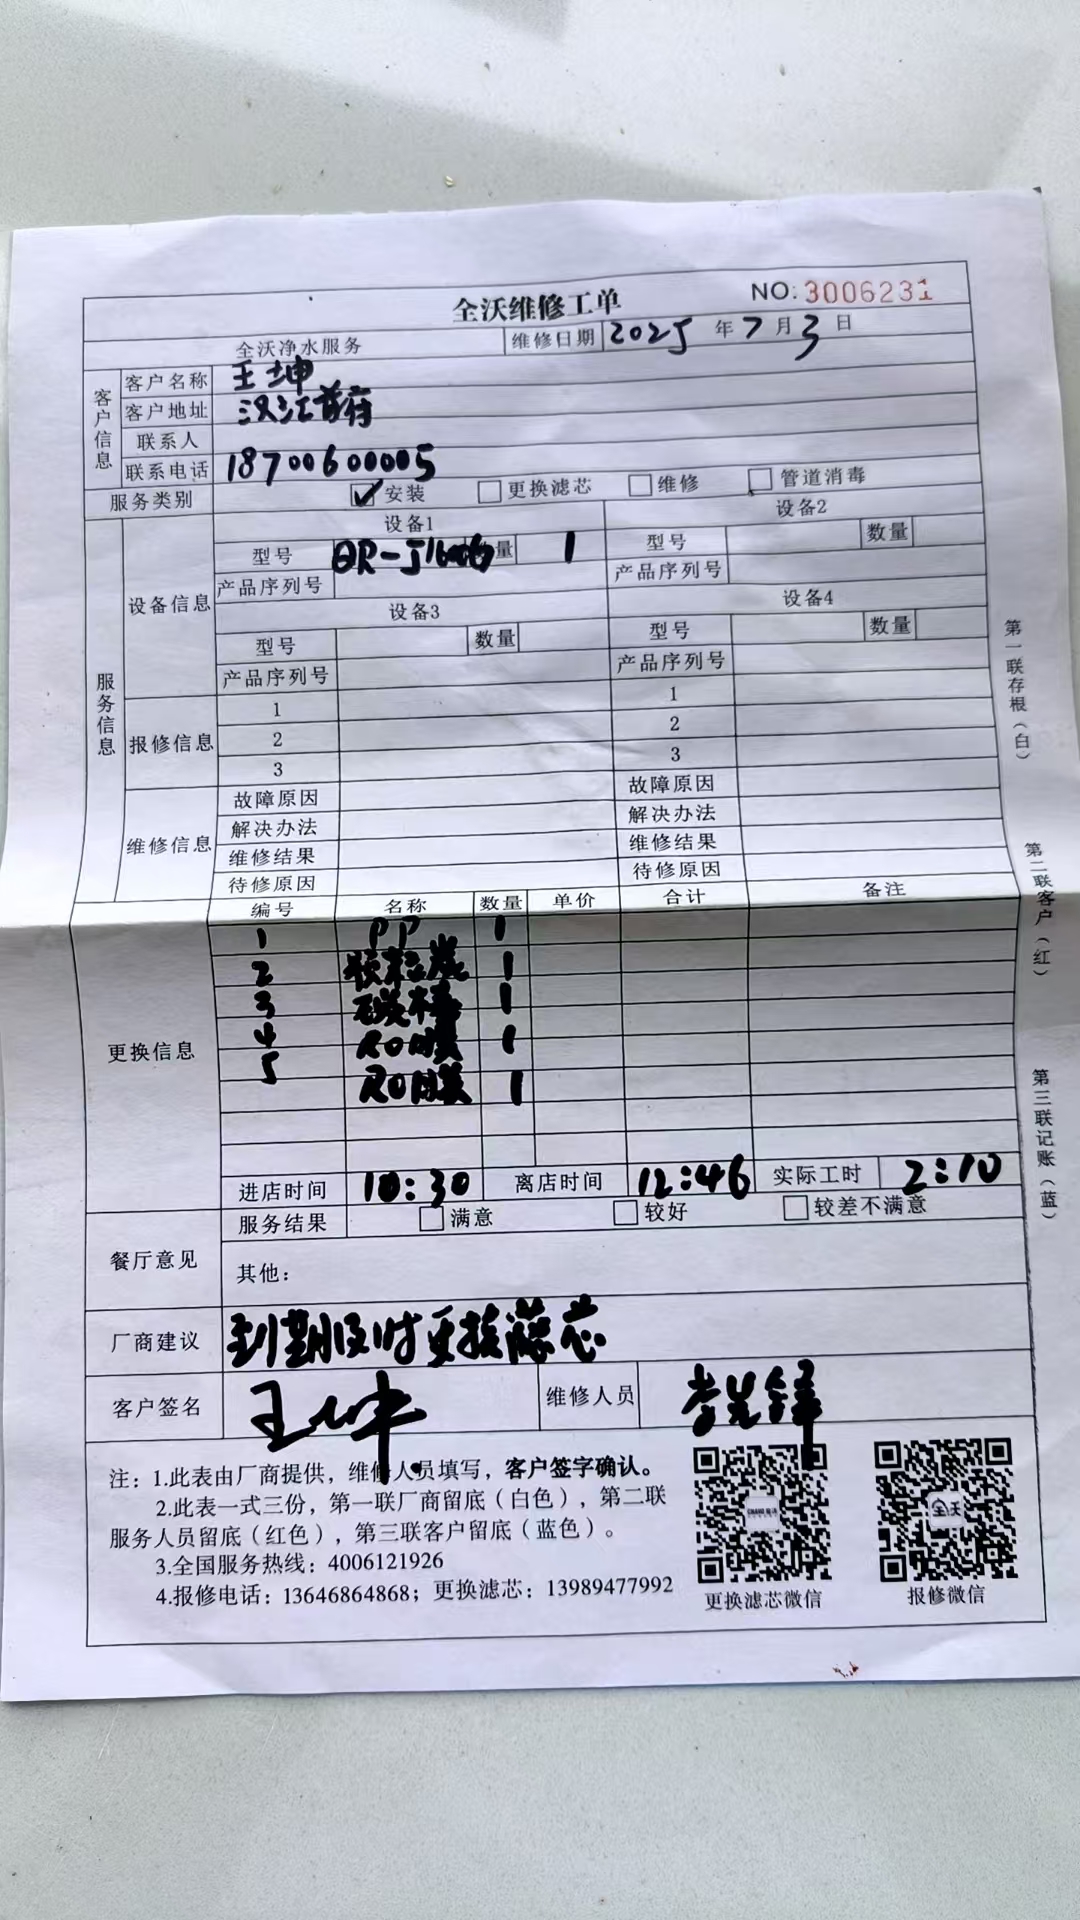 全沃维修工单
NO:3006231
全沃净水服务 维修日期 2025 年 7 月 3 日
客户信息
客户名称 王坤
客户地址 汉江首府
联系人
联系电话 18700600005
服务类别 安装 更换滤芯 维修 管道消毒
服务信息
设备信息
设备1 设备2
型号 量 1 型号 数量
产品序列号 产品序列号
设备3 设备4
型号 数量 型号 数量
产品序列号 产品序列号
报修信息
1 1
2 2
3 3
维修信息
故障原因 故障原因
解决办法 解决办法
维修结果 维修结果
待修原因 待修原因
更换信息
编号 名称 数量 单价 合计 备注
1 PP 1
2 颗粒炭 1
3 碳棒 1
4 RO膜 1
5 RO膜 1
进店时间 10:30 离店时间 12:46 实际工时 2:10
餐厅意见
服务结果 满意 较好 较差不满意
其他:
厂商建议 到期及时更换滤芯
客户签名 王坤 维修人员
注:1.此表由厂商提供,维修人员填写,客户签字确认。
2.此表一式三份,第一联厂商留底(白色),第二联
服务人员留底(红色),第三联客户留底(蓝色)。
3.全国服务热线:4006121926
4.报修电话:13646864868;更换滤芯:13989477992
更换滤芯微信
全沃
报修微信
第一联存根(白)
第二联客户(红)
第三联记账(蓝)